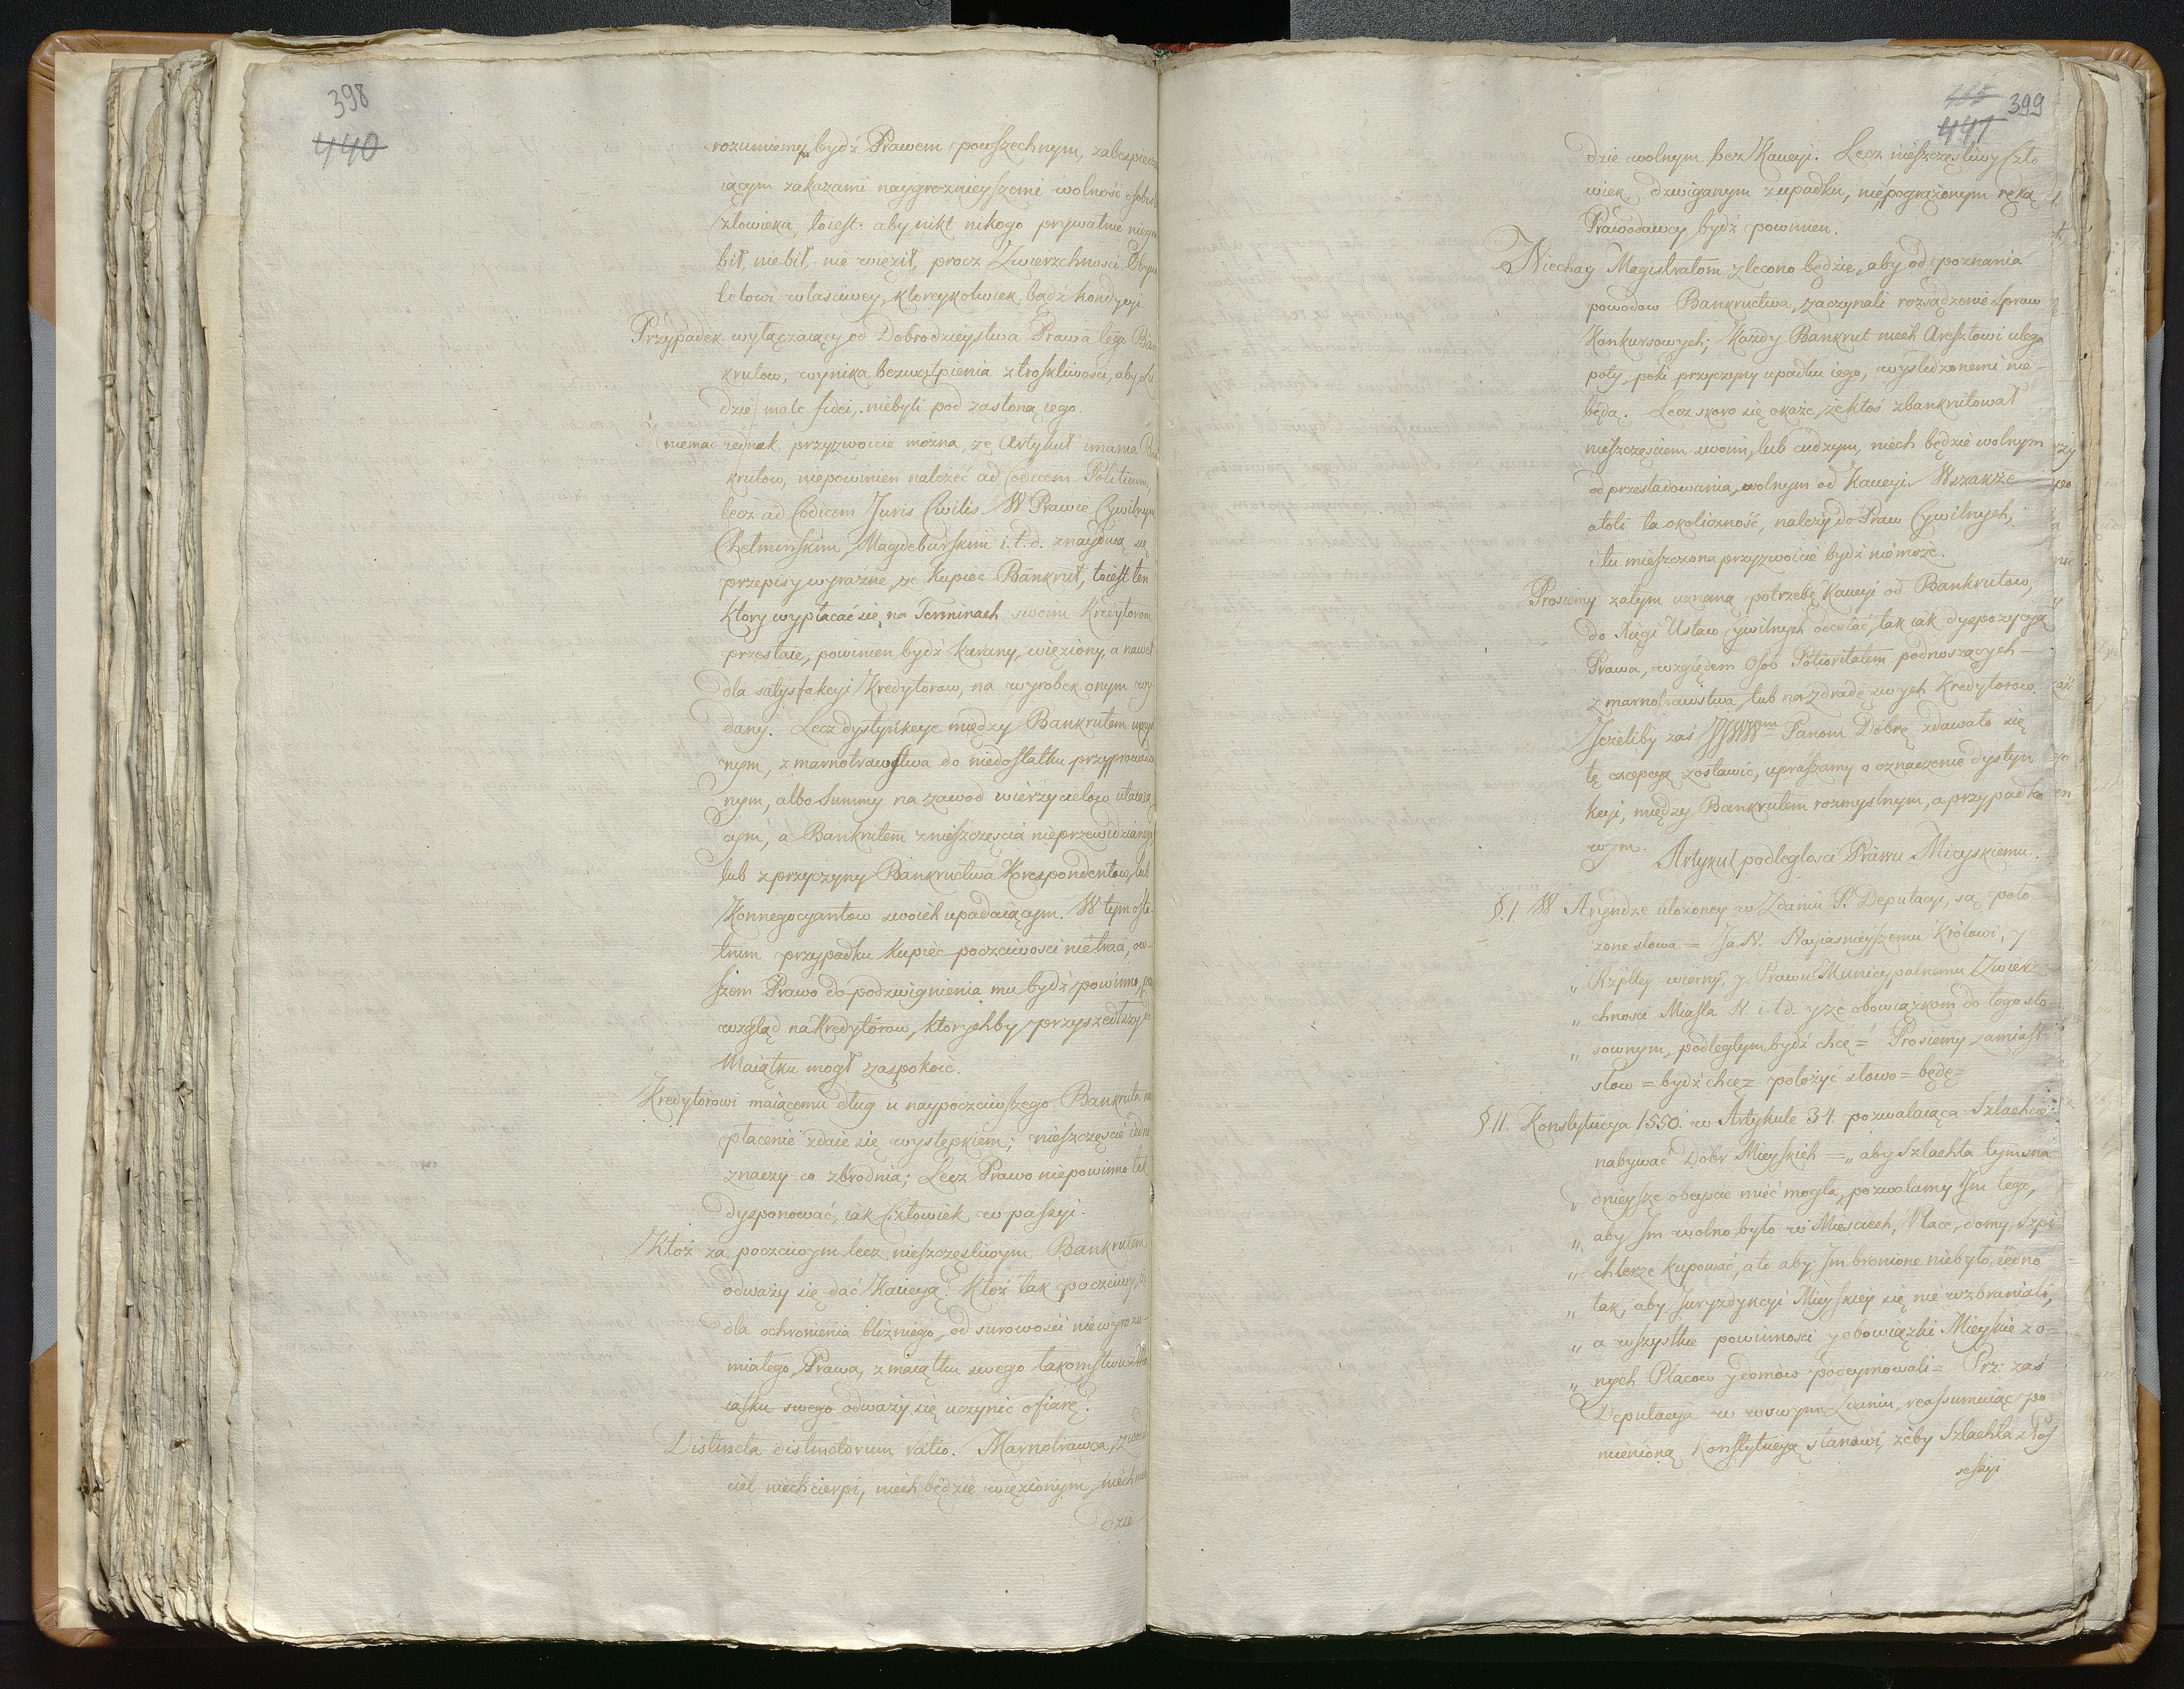 398
440
rozumiemy bydź Prawem powszechnym, zabespiecza
iącym zakazami naygroznieyszemi wolność osobist
Człowieka, toiest: aby nikt nikogo prywatnie
bił, nie bił, nie więził, procz Zwierzchnosci Obywa
telowi własciwey, ktoreykolwiek bądź kondycyi.
Przypadek wyłączaiący od Dobrodzieystwa Prawa tego Ban
krutow, wynika bezwątpienia z troskliwosci, aby Lu
dzie malæ fidei, niebyli pod zasłoną iego.
niemać iednak przyzwoicie można, ze Artykuł imania Ban
krutow, niepowinien należeć ad Codicem Politicum,
lecz ad Codicem Juris Civilis. W Prawie Cywilnym
Chełmińskim, Magdeburskim i.t.d. znayduią się
przepisy wyraźne, że Kupiec Bankrut, toiest ten
ktory wypłacać się na Terminach swoim Kredytorom
przestaie, powinien bydź karany, więziony, a nawet
dla satysfakcyi Kredytorow, na wyrobek onym wy-
dany. Lecz dystynkcye między Bankrutem umysl
nym, z marnotrawstwa do niedostatku przyprowadzo
nym, albo Summy na zawod wierzycielow utaiaią
cym, a Bankrutem z nieszczęscia nieprzewidzianego
lub z przyczyny Bankructwa Korespondentow, lub
Konnegocyantow swoich upadaiącym. W tym osta-
tnim przypadku Kupiec poczciwosci nietraci, ow-
szem Prawo do podzwignienia mu bydź powinno, przez
wzgląd na Kredytórow, ktorychby przyszedłszy do
Maiątku mogł zaspokoić.
Kredytorowi maiącemu dług u naypoczciwszego Bankruta nie
płacenie zdaie się występkiem; nieszczęscie iedno
znaczy co zbrodnia; Lecz Prawo niepowinno tak
dysponować, iak Człowiek w passyi.
Któż za poczciwym lecz nieszczęsliwym Bankrutem
odważy się dać Kaucyą? Któż tak poczciwy, iż
dla ochronienia bliźniego, od surowosci niewyrozu-
miałego Prawa, z maiątku swego łakomstwu
iątku swego odważy się uczynić ofiarę?
Distincta distinctorum ratio. Marnotrawca, Zwodzi
ciel niech cierpi, niech będzie więzionym, niech nie
dzie
447
399
dzie wolnym bez Kaucyi. Lecz nieszczęsliwy Czło
wiek, dzwiganym z upadku, niépogrążonym ręką
Prawodawcy bydź powinien.
Niechay Magistratom zlecono będzie, aby od poznania
powodow Bankructwa, zaczynali rozsądzenie spraw
Konkursowych; Każdy Bankrut niech Aresztowi ulega
poty, poki przyczyny upadku iego, wysledzonemi nie-
będą. Lecz skoro się okaże, że ktoś zbankrutował
nieszczęsciem swoim, lub cudzym, niech będzie wolnym
od przesladowania, wolnym od Kaucyi. Wszakże
atoli ta okoliczność, należy do Praw Cywilnych,
i tu mieszczona przyzwoicie bydź niémoże.
Prosiemy zatym uznaną potrzebę Kaucyi od Bankrutow,
do Xięgi Ustaw Cywilnych odesłać, tak iak dyspozycyą
Prawa, względem Osob Potioritatem podnoszących
z marnotrawstwa, lub na zdradę swych Kredytorow.
Jeżeliby zaś JJWW Panom Dobrę zdawało się
tę excepcyą zostawić, upraszamy o oznaczenie dystyn
kcyi, między Bankrutem rozmyslnym, a przypadko
wym.
Artykuł podległosci Prawu Mieyskiemu.
§. I. W Aryndze ułożoney w Zdaniu P. Deputacyi, są poło
żone słowa = Ja N. Nayiasnieyszemu Królowi, y
„ Rzpltey wierny, y Prawu Municypalnemu Zwierz
„ chnosci Miasta N. i.t.d. y że obowiązkom do tego sto-
„ sownym, podległym bydź chcę = Prosiemy zamiast
słow = bydź chcę = położyć słowo = będę =
§. II. Konstytucya 1550. w Artykule 34. pozwalaiąca Szlachcie
nabywać Dóbr Mieyskich = „ aby Szlachta tym sna-
„ dnieysze obeyscie mieć mogła, pozwalamy Im tego,
„ aby Im wolno było w Miesciech, Place, domy, Szpi
„ chlerze kupować, ato aby Im bronione niebyło, iedno
„ tak, aby Juryzdykcyi Mieyskiey się nie wzbraniali,
„ a wszystkie powinnosci y obowiązki Mieyskie z o-
„ nych Placow y domow podeymowali = Prz: zaś
Deputacya w swoym Zdaniu, reassumuiąc po
mienioną Konstytucyą stanowi, żeby Szlachta z Pos
sessyi